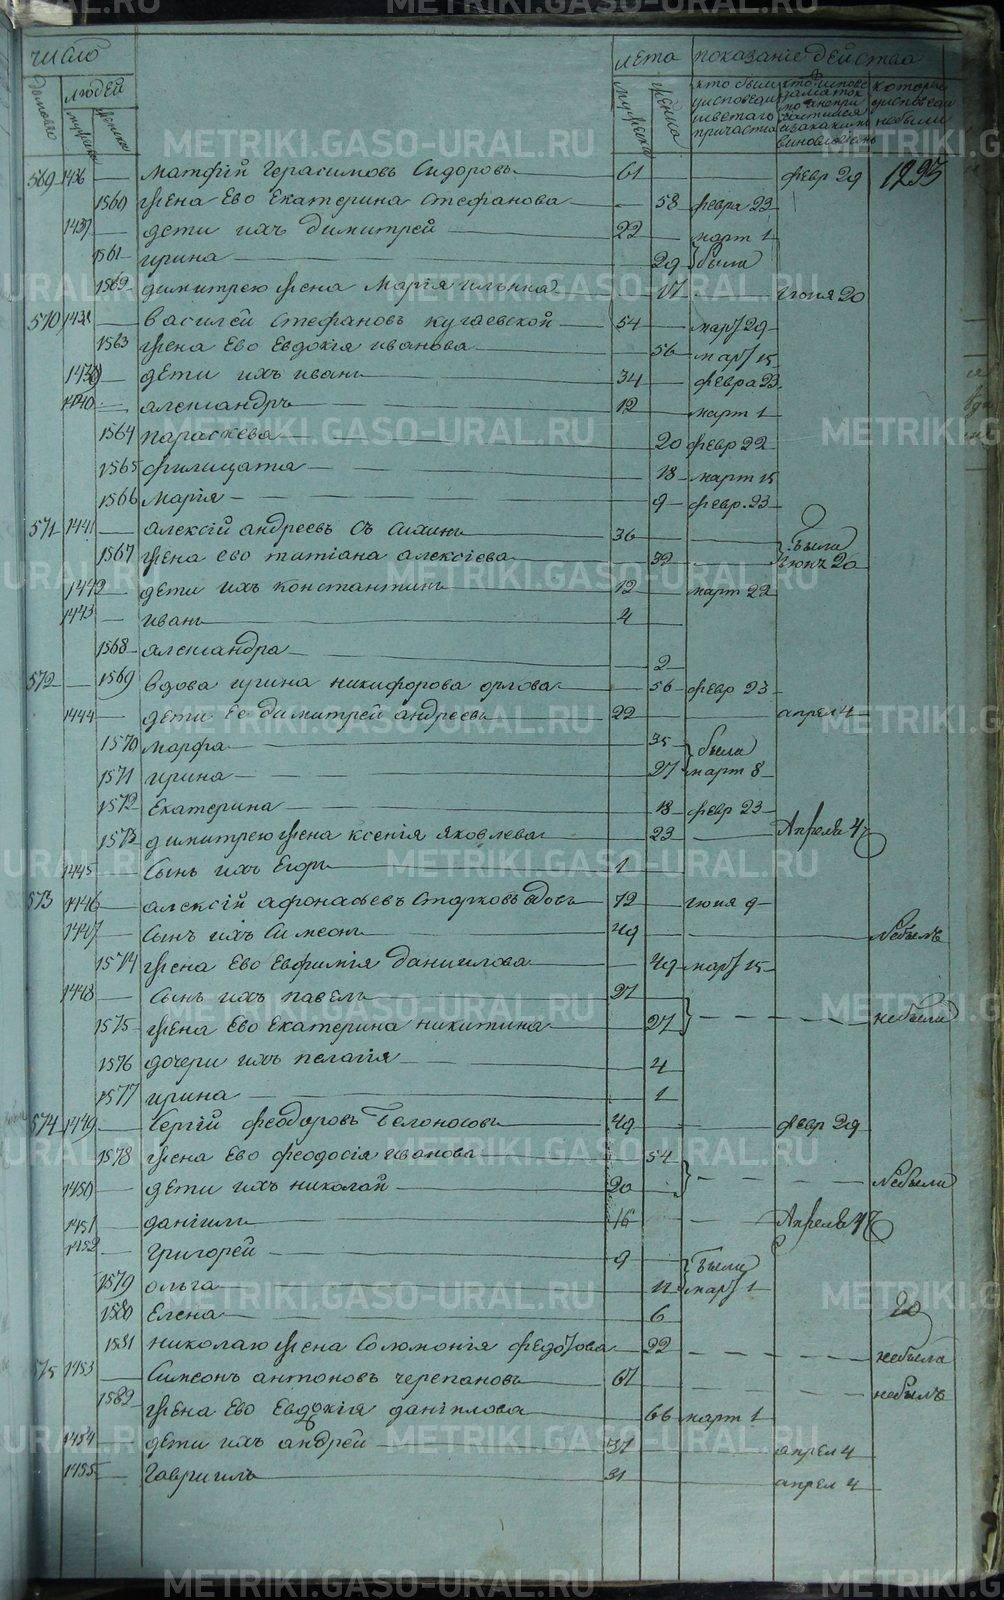 число лета показание действа
домовъ людей мужеска женска кто были у исповеди и святаго причастия которые у исповеди небыли
мужеска женска
569 1436 — Матфий Герасимовъ Сидоровъ 61 — февр 29 1295
1560 жена Ево Екатерина Стефанова — 58 февра 23
1437 — дети ихъ Димитрей 22 — март 1
1561 ирина — 29 были
1562 димитрею жена Мария ильина 17 июня 20
570 1438 — Василей Стефановъ кугаевской 54 — март 29
1563 жена Ево Евдокия иванова — 56 март 15
1439 — дети ихъ иванъ 34 — февра 23
1440 — александръ 12 — март 1
1564 параскева — 20 февр 22
1565 филицата — 18 март 15
1566 Мария — 9 февр. 23
571 1441 — алексий андреевъ Съ 36 — были
1567 жена ево татиана алексиева 32 июнь 20
1442 — дети ихъ константинъ 12 — март 22
1443 — иванъ 4
1568 александра — 2
572 — 1569 вдова ирина никифорова орлова — 56 февр 23
1444 — дети Ее димитрей андреевъ 22 — апрел 4
1570 марфа — 35 были
1571 ирина — 27 март 8
1572 Екатерина — 18 февр 23
1573 димитрею жена ксения яковлева — 23 — Апреля 4
1445 — Сынъ ихъ Егоръ 1
573 1446 — алексий афонасьевъ Старковъ вдовъ 72 — июня 9
1447 — Сынъ ихъ Симеонъ 49 — небылъ
1574 жена Ево Евфимия даниилова — 49 март 15
1448 — Сынъ ихъ павелъ 27
1575 жена Ево Екатерина никитина 27 небыли
1576 дочери ихъ пелагия — 4
1577 ирина — 1
574 1449 — Сергий феодоровъ Белоносовъ 49 — февр 29
1578 жена Ево феодосия иванова 54
1450 — дети ихъ николай 20 небыли
1451 — даниилъ 16 Апреля 4
1452 — григорей 9 были
1579 ольга — 11 март 1
1580 Елена — 6 20
1581 николаю жена Соломония федотова 22 небыла
575 1453 — Симеонъ антоновъ черепановъ 67 небылъ
1582 жена Ево Евдокия даниилова 66 март 1
1454 — дети ихъ андрей 37 — апрел 4
1455 — Гавриилъ 31 — апрел 4
METRIKI.GASO-URAL.RU